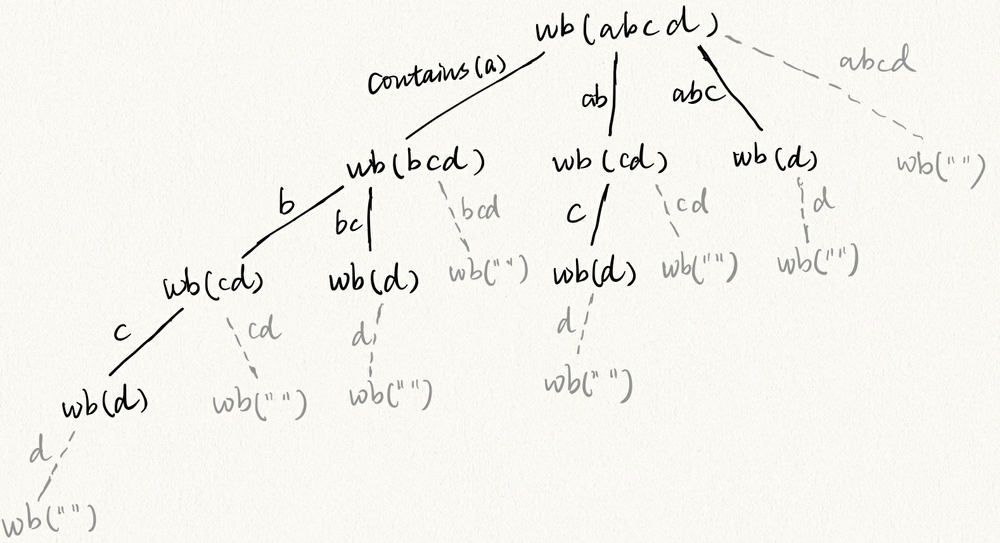 wb(abcd)
contains(a)
ab
abc
abcd
wb(bcd)
wb(cd)
wb(d)
wb("")
b
bc
bcd
c
cd
d
wb(cd)
wb(d)
wb("")
wb(d)
wb("")
wb("")
c
cd
d
d
wb(d)
wb("")
wb("")
wb("")
d
wb("")